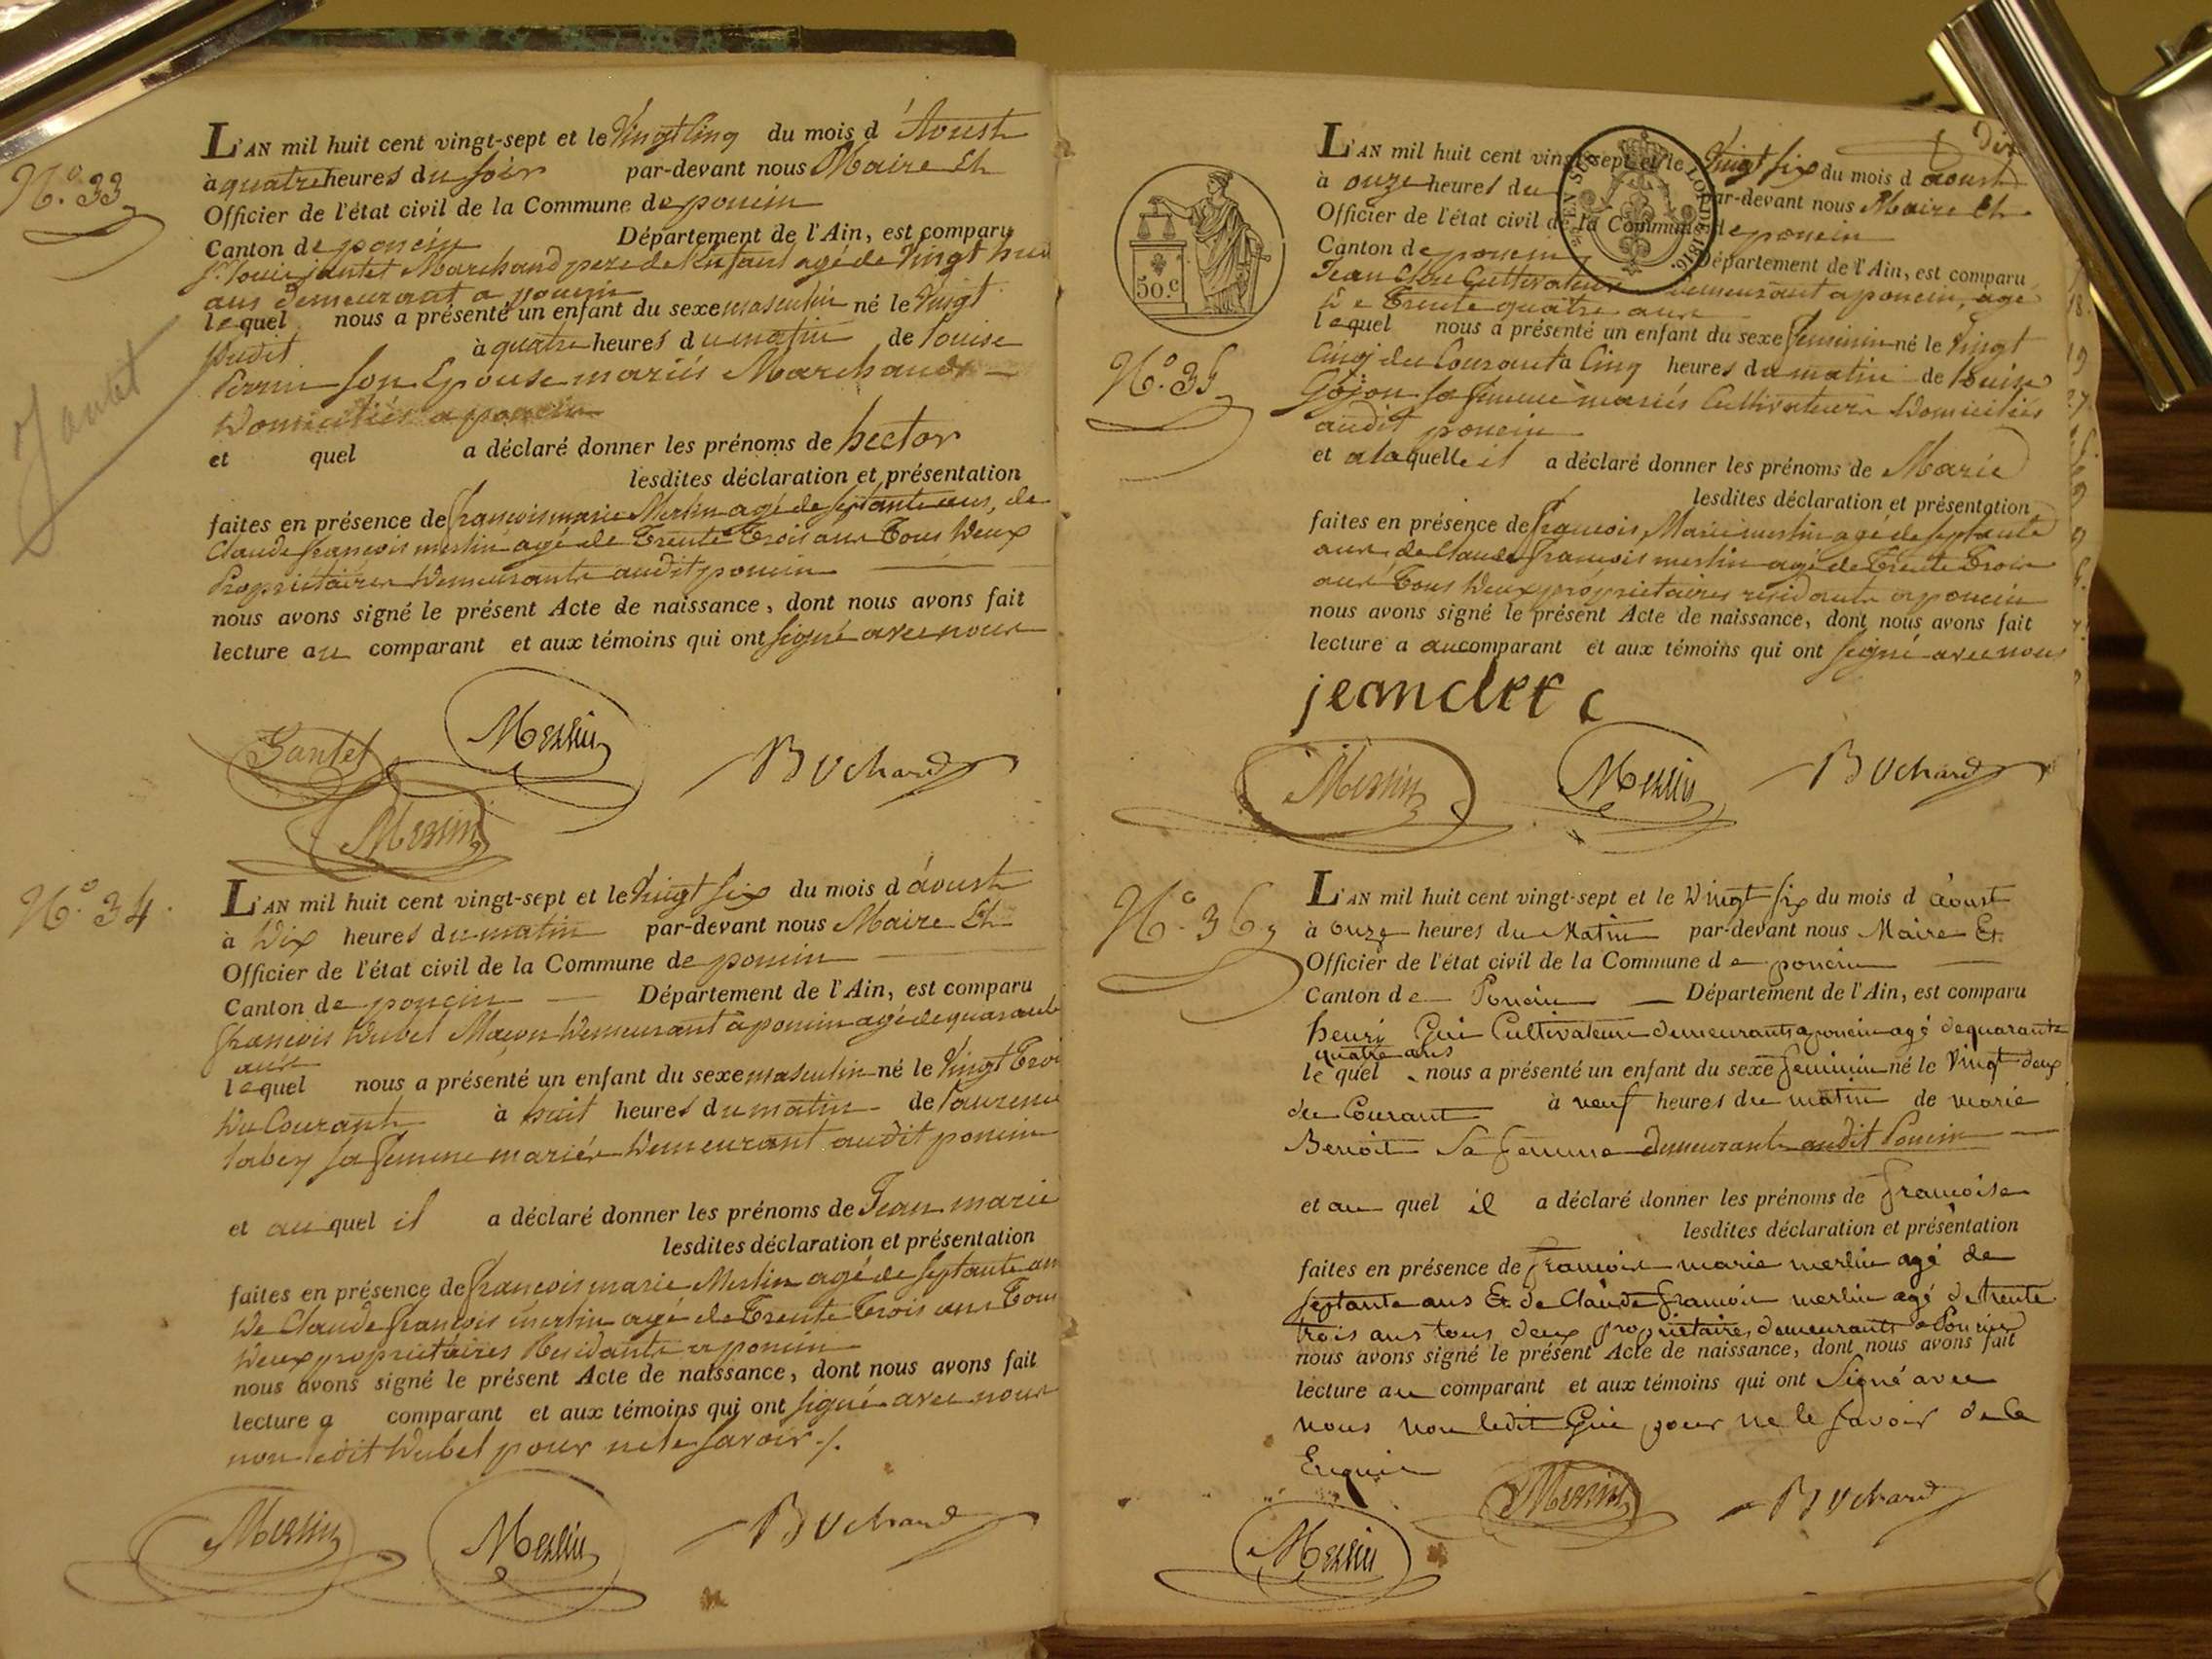 N.° 33
Jantet
L'AN mil huit cent vingt-sept et le Vingt Cinq du mois d'Aoust
à quatre heures du soir par-devant nous Maire Et
Officier de l'état civil de la Commune de poncin
Canton de poncin Département de l'Ain, est comparu
Sr. Louis jantet Marchand pere de l'enfant agé de Vingt huit
ans demeurant a poncin
lequel nous a présenté un enfant du sexe masculin né le Vingt
à quatre heures du matin de Louise
son Epouse mariés Marchands
Domiciliés a poncin
et quel a déclaré donner les prénoms de hector
lesdites déclaration et présentation
faites en présence de françois marie Merlin agé de septante ans, de
Claude françois merlin agé de Trente Trois ans Tous Deux
Propriétaires Demeurants audit poncin
nous avons signé le présent Acte de naissance, dont nous avons fait
lecture au comparant et aux témoins qui ont signé avec nous
Jantet Merlin Buchard
Merlin
N.° 34
L'AN mil huit cent vingt-sept et le Vingt six du mois d'aoust
à Dix heures du matin par-devant nous Maire Et
Officier de l'état civil de la Commune de poncin
Canton de poncin Département de l'Ain, est comparu
françois Dubel Maçon Demeurant a poncin agé de quarante
ans
lequel nous a présenté un enfant du sexe masculin né le Vingt Troi
Du Courant à huit heures du matin de Laurence
Labey sa femme mariés Demeurant audit poncin
et au quel il a déclaré donner les prénoms de Jean marie
lesdites déclaration et présentation
faites en présence de françois marie Merlin agé de septante an
De Claude françois merlin agé de Trente Trois ans Tous
Deux propriétaires Residants a poncin
nous avons signé le présent Acte de naissance, dont nous avons fait
lecture a comparant et aux témoins qui ont signé avec nous
non ledit Dubel pour ne le savoir ./.
Merlin Merlin Buchard
50.c
EN SUS LOI DE 1816.
N.° 35
L'AN mil huit cent vingt-sept et le Vingt six du mois d aoust
à onze heures du par-devant nous Maire Et
Officier de l'état civil de la Commune de poncin
Canton de poncin Département de l'Ain, est comparu
Jean Clere Cultivateur demeurant a poncin, agé
De Trente quatre ans
lequel nous a présenté un enfant du sexe feminin né le Vingt
Cinq du Courant à Cinq heures du matin de
Gojon sa femme mariés Cultivateurs Domiciliés
audit poncin
et a laquelle il a déclaré donner les prénoms de Marie
lesdites déclaration et présentation
faites en présence de françois Marie merlin agé de septante
ans, de Claude françois merlin agé de Trente Trois
ans Tous Deux propriétaires residants a poncin
nous avons signé le présent Acte de naissance, dont nous avons fait
lecture a au comparant et aux témoins qui ont signé avec nous
jean clere
Merlin Merlin Buchard
N.° 36
L'AN mil huit cent vingt-sept et le Vingt six du mois d aoust
à onze heures du Matin par-devant nous Maire Et
Officier de l'état civil de la Commune de poncin
Canton de Poncin Département de l'Ain, est comparu
henri Gui Cultivateur demeurant a poncin agé de quarante
quatre ans
lequel nous a présenté un enfant du sexe feminin né le Vingt deux
du Courant à neuf heures du matin de marie
Benoit Sa femme demeurants audit Poncin
et au quel il a déclaré donner les prénoms de francoise
lesdites déclaration et présentation
faites en présence de francois marie merlin agé de
septante ans Et de Claude francois merlin agé de trente
trois ans tous deux propriétaires demeurants a Poncin
nous avons signé le présent Acte de naissance, dont nous avons fait
lecture au comparant et aux témoins qui ont Signé avec
nous non ledit Gui pour ne le savoir de ce
Enquis
Merlin Merlin Buchard